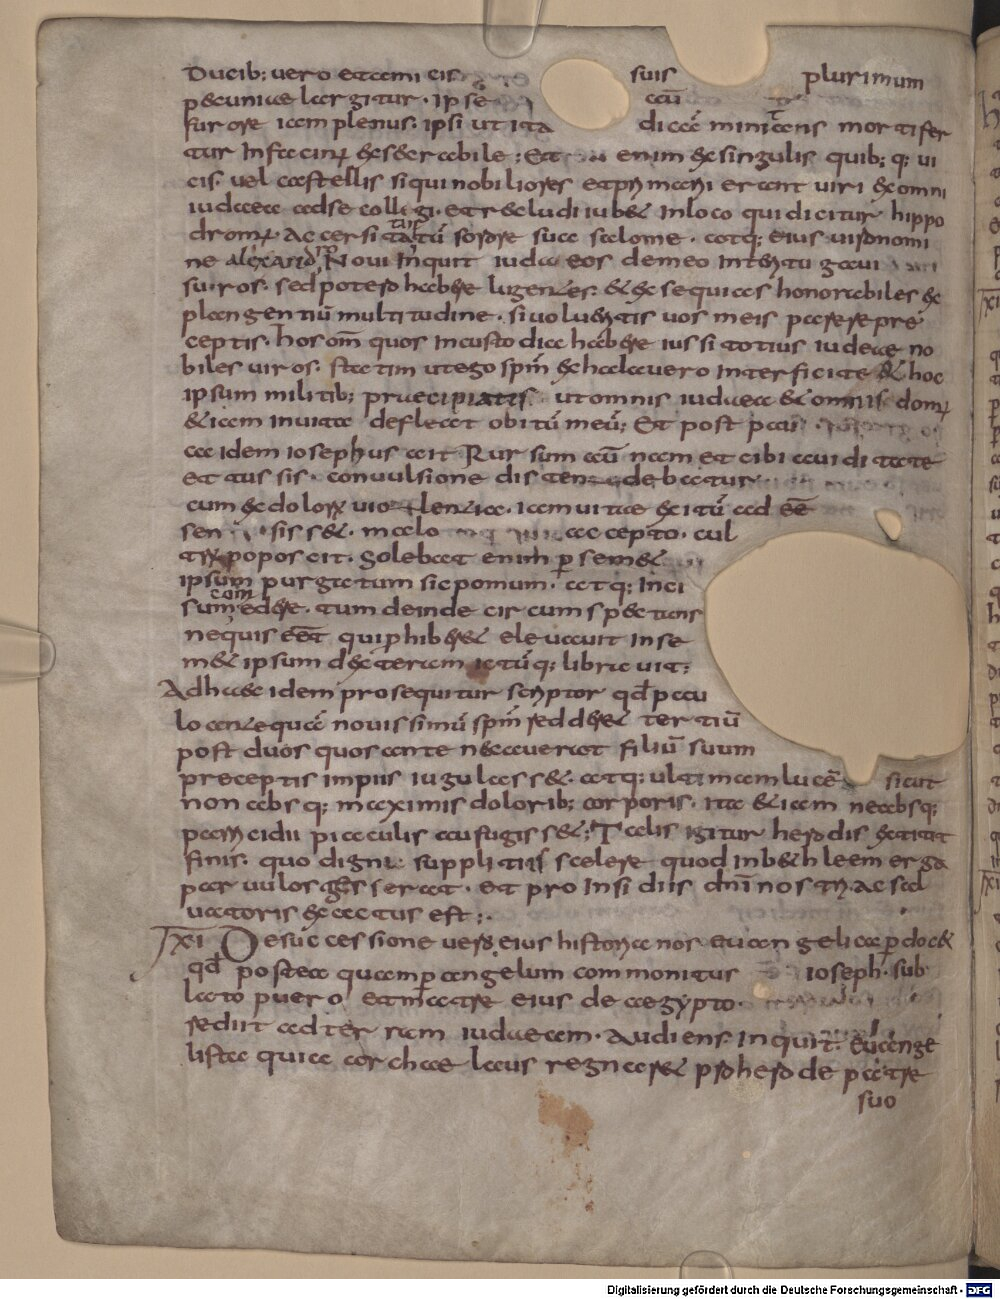 Ducib; vero et amicis suis plurimum
pecuniae largitur. ipse cũ
furore iam plenus. ipsi ut ita dicã minitans morti fer
tur In facinꝰ exsecrabile; Et enim ex singulis quib; q; vi
cis. vel castellis siqui nobiliores et primarii erant viri ex omni
iudaea adse collegi. et recludi iubet In loco qui dicitur hippo
dromꝰ. Accersitatũ sorore sua salome. atq; eius uiro nomi
ne alexandro Noui Inquit iudaeos demeo Interitu gaui
suros. sed potero habere lugentes. & exsequias honorabiles ex
plangentiũ multitudine. si volueritis vos meis parere pre
ceptis. hos om̃ quos In custodia habere iussi totius iudeae no
biles uiros. statim ut ego spm̃ exhalauero Interficite & hoc
ipsum militib; praecipiatis ut omnis iudaea & omnis domꝰ
& iam Inuita defleat obitũ meũ; Et post pau
ca idem iosephus ait Rursum cũ nam et cibi auiditate
et tussis convulsione distendebatur
cum ex dolorꝫ violentia. iam vitae exitũ ad eẽ
sensisset. malo accepto. cul
trꝫ poposcit. Solebat enim ꝑ semet
ipsum purgatum sic pomum. atq; Inci
sum comedere. tum deinde circumspectans
nequis eẽt qui ꝓhiberet eleuauit In se
met ipsum dexteram ictũq; librauit;
Ad haec idem prosequitur scriptor qđ pau
lo ante quã novissimũ spm̃ redderet tertiũ
post duos quos ante necauerat filiũ suum
preceptis impiis iugulasset. atq; ultimam lucẽ sicut
non absq; maximis dolorib; corporis. ita & iam necabsq;
parricidii piaculis aufugisset; Talis igitur herodis extitit
finis. quo dignis suppliciis scelere quod In bethleem erga
parvulos gesserat. et pro Insidiis dn̄i nostri ac sal
vatoris exactus est;.
XI De successione vero eius historia nos euangelica ꝑdocet
qđ postea quam ꝑ angelum commonitus ioseph. sub
lato puero et matre eius de aegypto.
rediit ad terram iudaeam. Audiens Inquit euange
lista quia archaelaus regnaret pro herode patre
suo
Digitalisierung gefördert durch die Deutsche Forschungsgemeinschaft - DFG